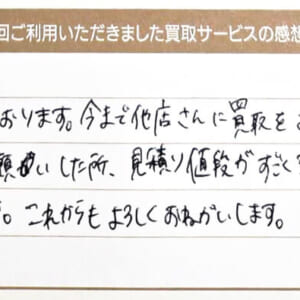 回ご利用いただきました買取サービスの感想
おります。今まで他店さんに買取を
願いした所、見積り値段がすごく
。これからもよろしくおねがいします。